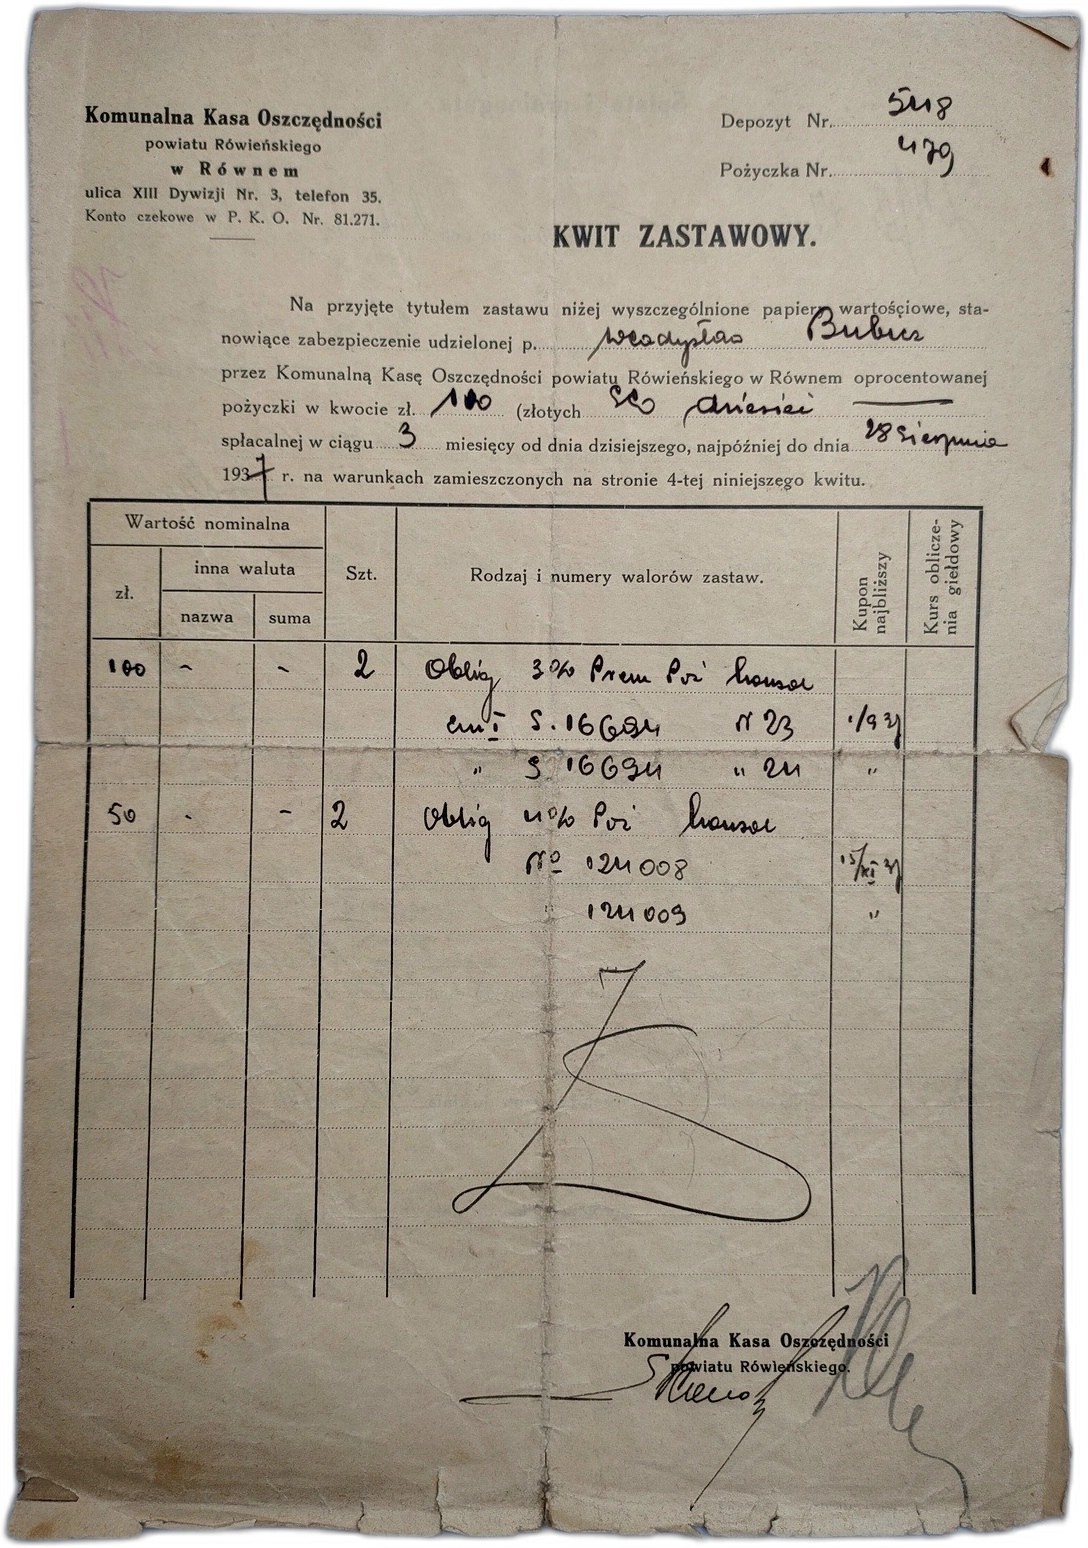 Komunalna Kasa Oszczędności
powiatu Rówieńskiego
w Równem
ulica XIII Dywizji Nr. 3, telefon 35.
Konto czekowe w P. K. O. Nr. 81.271.
Depozyt Nr. 548
Pożyczka Nr. 479
KWIT ZASTAWOWY.
Na przyjęte tytułem zastawu niżej wyszczególnione papiery wartościowe, sta-
nowiące zabezpieczenie udzielonej p. Władysław
przez Komunalną Kasę Oszczędności powiatu Rówieńskiego w Równem oprocentowanej
pożyczki w kwocie zł. 110 (złotych sto dziesięć
spłacalnej w ciągu 3 miesięcy od dnia dzisiejszego, najpóźniej do dnia 28 sierpnia
1937 r. na warunkach zamieszczonych na stronie 4-tej niniejszego kwitu.
Wartość nominalna
zł.
inna waluta
nazwa
suma
Szt.
Rodzaj i numery walorów zastaw.
Kupon najbliższy
Kurs oblicze-
nia giełdowy
100 - - 2 Oblig 3% Prem Poż konsol
em I S. 16694 N 23 1/9 37
" S 16694 " 24 "
50 - - 2 Oblig 4% Poż konsol
No 124008 15/XI 37
" 124009 "
Komunalna Kasa Oszczędności
powiatu Rówieńskiego.